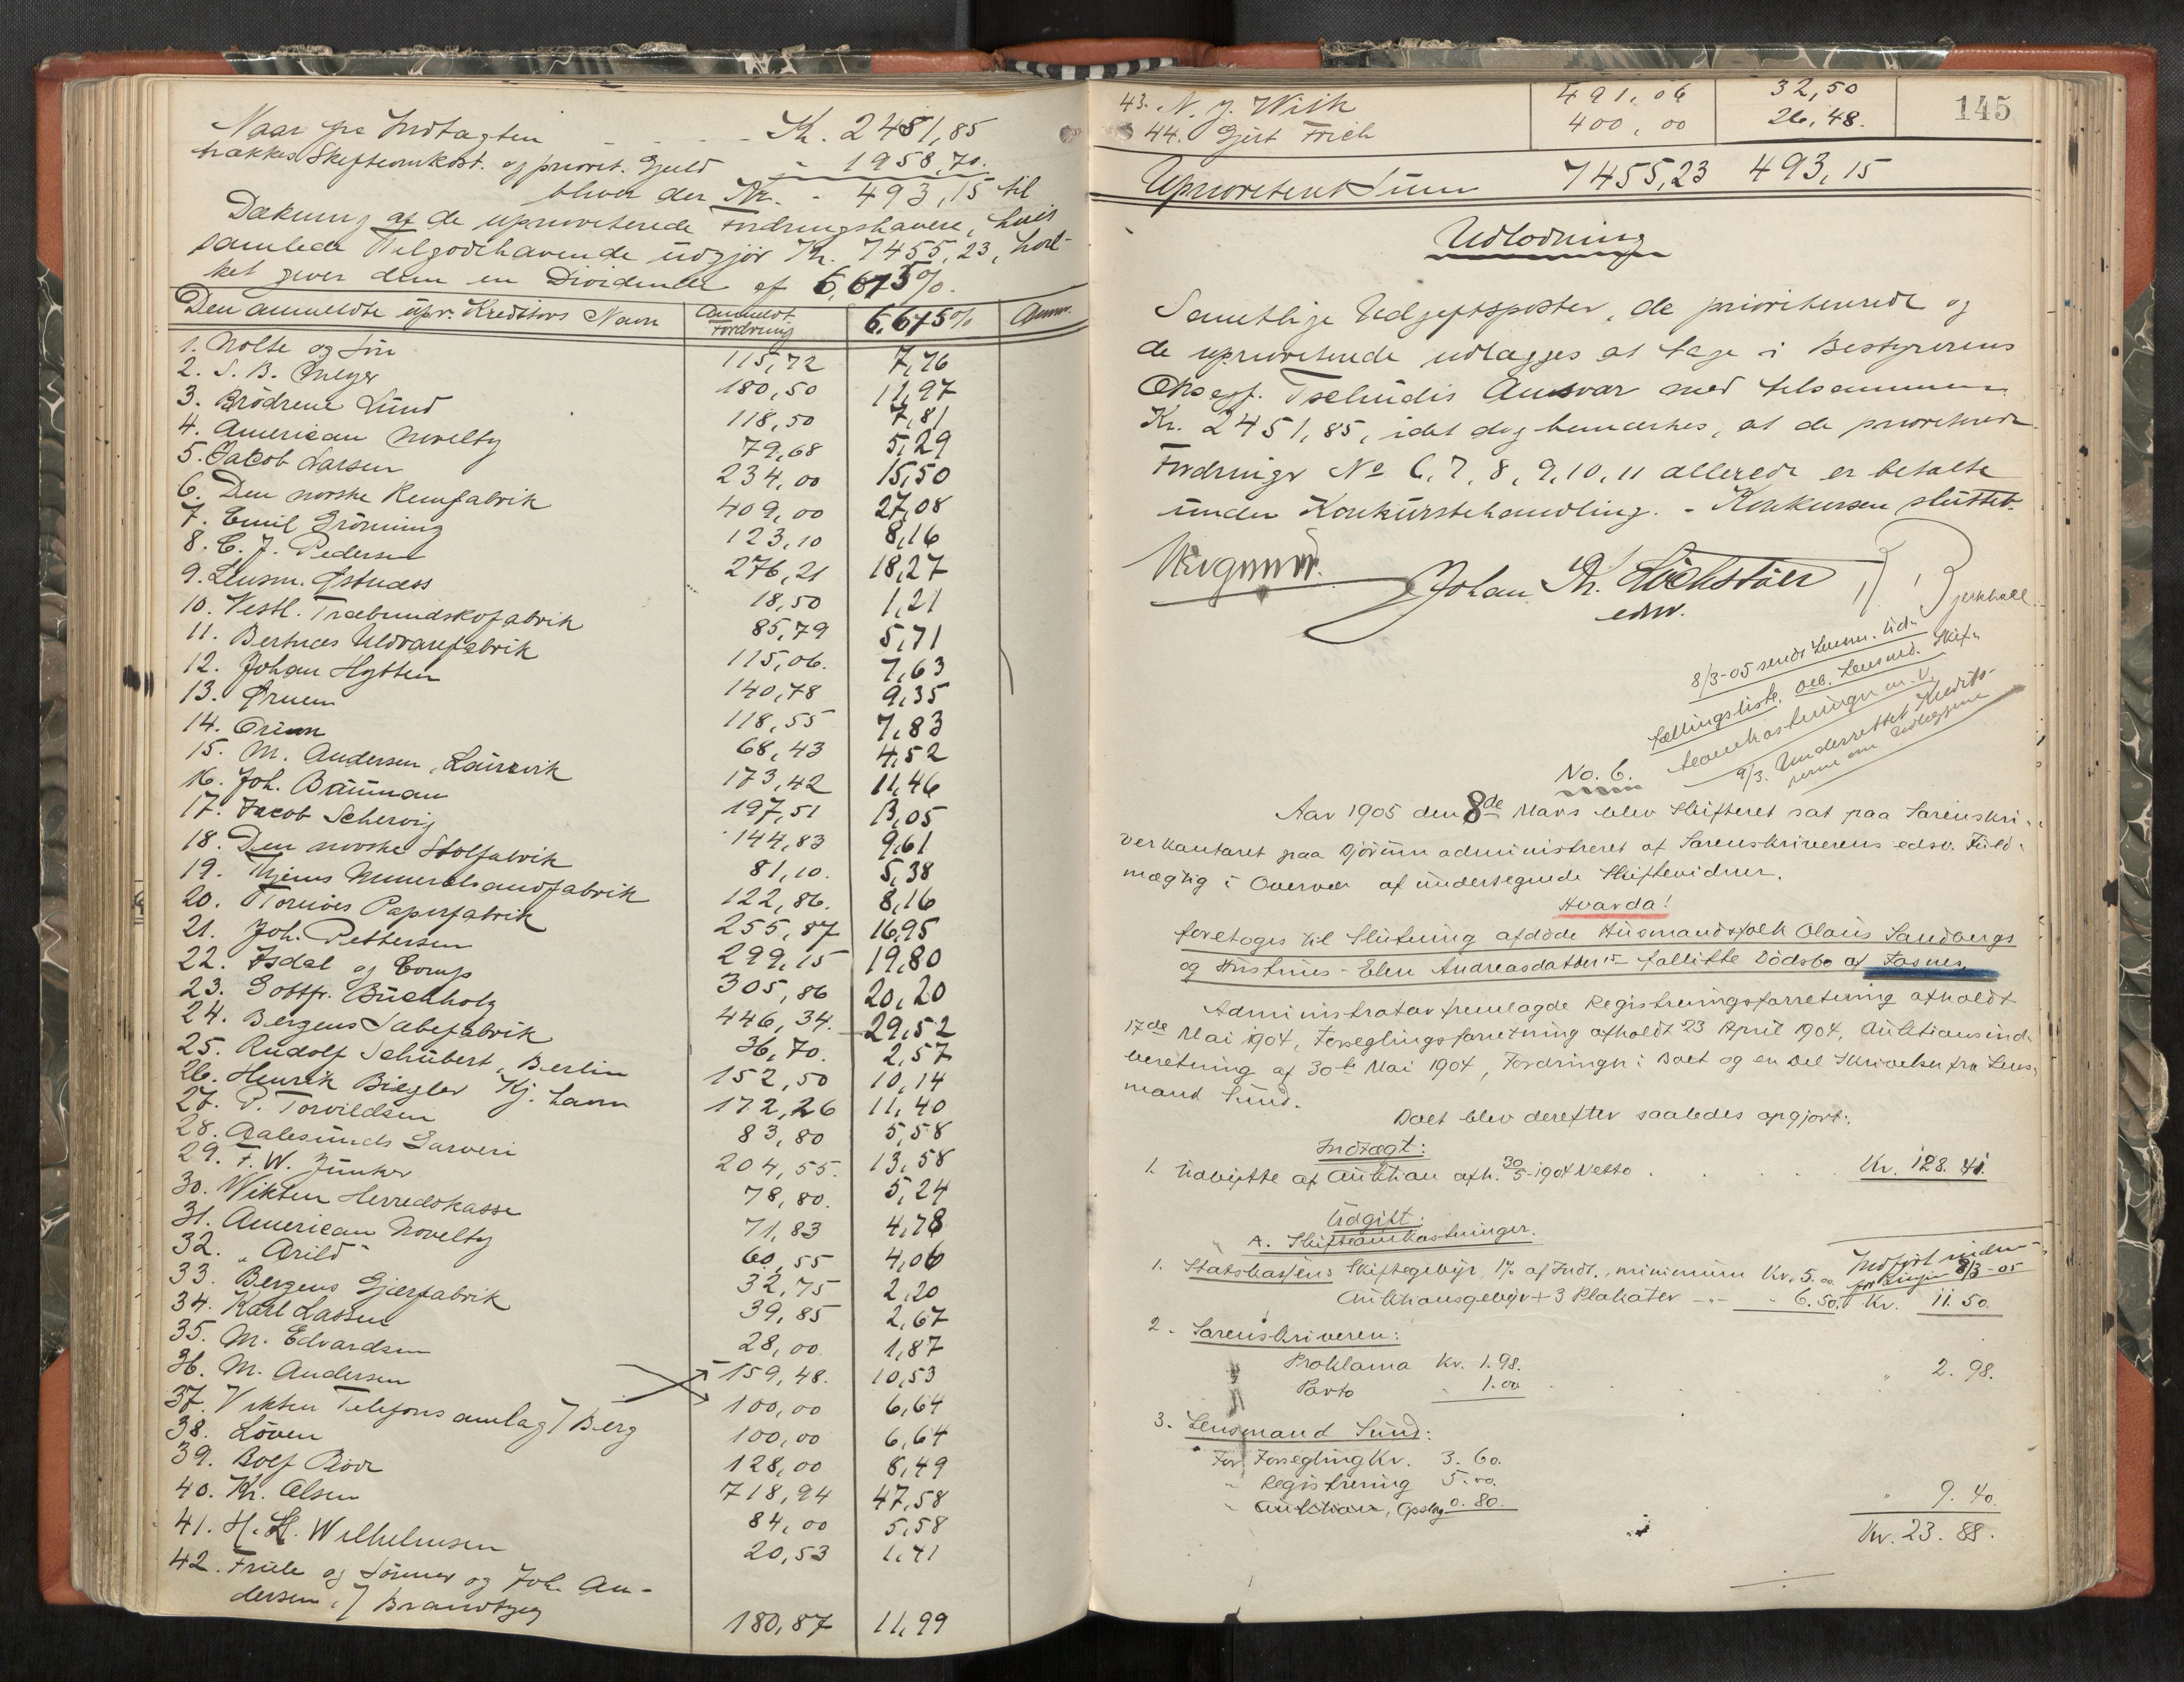 Naar fra Indtægten - - - Kr. 2451,85
trækkes Skifteomkost. og priorit. Gjeld " 1958,70.
bliver der Kr. - 493,15 til
Dækning af de uprioriterede Fordringshavere, hvis
samlede Tilgodehavende udgjør Kr. 7455,23, hvil-
ket giver dem en Dividende af 6,675%.
Den anmeldte upr. Kreditors Navn Anmeldt Fordring 6,675% Anm.
1. Nolte og Søn 115,72 7,76
2. S. B. Meyer 180,50 11,97
3. Brödrene Lund 118,50 7,81
4. American Novelty 79,68 5,29
5. Jacob Larsen 234,00 15,50
6. Den norske Remfabrik 409,00 27,08
7. Emil Grönning 123,10 8,16
8. C. J. Pedersen 276,21 18,27
9. Lensm. Østnæss 18,50 1,21
10. Vestl. Træbundskofabrik 85,79 5,71
11. Bertnæs Uldvarefabrik 115,06. 7,63
12. Johan Hytten 140,78 9,35
13. Ørnen 118,55 7,83
14. Orion 68,43 4,52
15. M. Andersen, Laurvik 173,42 11,46
16. Joh. Bauman 197,51 13,05
17. Jacob Schervig 144,83 9,61
18. Den norske Stolfabrik 81,10. 5,38
19. Hjems Mineralvandfabrik 122,86. 8,16
20. Papirfabrik 255,87 16,95
21. Joh. Pettersen 299,15 19,80
22. Isdal og Comp 305,86 20,20
23. Gottfr. Buchholz 446,34. 29,52
24. Bergens Sæbefabrik 36,70. 2,57
25. Rudolf Schubert, Berlin 152,50 10,14
26. Henrik Biegler Kj. havn 172,26 11,40
27. P. Torvildsen 83,80 5,58
28. Aalesunds Garveri 204,55. 13,58
29. F. W. Junker 78,80. 5,24
30. Vikten Herredskasse 71,83 4,78
31. American Novelty 60,55 4,06
32. "Arild" 32,75 2,20
33. Bergens Gjærfabrik 39,85 2,67
34. Karl Lassen 28,00. 1,87
35. M. Edvardsen 159,48. 10,53
36. M. Andersen 100,00 6,64
37. Vikten Telefonsamlag / Berg 100,00 6,64
38. Löven 128,00 8,49
39. Rolf Röde 718,94 47,58
40. Kr. Olsen 84,00 5,58
41. H. H. Wilhelmsen 20,53 1,41
42. Friele og Sönner og Joh. An-
dersen, / Brandtzeg 180,87 11,99
145
43. N. J. Wiik 491,06 32,50
44. Gjert Frich 400,00 26,48.
Uprioriteret Sum 7455,23 493,15
Udlodning
Samtlige Udgiftsposter, de prioriterede og
de uprioriterede udlægges at tage i Bestyrerens
Oberf. Tschudis Ansvar med tilsammen
Kr. 2451,85, idet dog bemerkes, at de prioriterede
Fordringer No 6, 7, 8, 9, 10, 11 allerede er betalte
under Konkursbehandling. - Konkursen sluttet.
Johan Kr.
edsv.
8/3-05 sendt Lensm. Ud-
9/3. Underrettet Kredito-
rerne om Udlæggene
No. 6.
Aar 1905 den 8de Mars blev Skifteret sat paa Sorenskri-
verkontoret paa Djörum administreret af Sorenskriverens edsv. Fuld-
mægtig i Overvær af undertegnede Skiftevidner.
Hvorda!
foretoges til Slutning afdöde Husmandsfolk Olaus Sandbergs
og Hustrus - Elen Andreasdatters - fallitte Dödsbo af Fosnes.
Administrator fremlagde Registreringsforretning afholdt
17de Mai 1904, Forseglingsforretning afholdt 23 April 1904, Auktionsind-
beretning af 30te Mai 1904, Fordringer i Boet og en Del Skrivelser fra Lens-
mand Sund.
Boet blev derefter saaledes opgjort:
Indtægt:
1. Udbytte af Auktion afh. 30/5-1904 Netto . . . Kr. 128.41.
Udgift:
A. Skifteomkostninger.
1. Statskassens Skiftegebyr, 1% af Indt., minimum Kr. 5.00
Indfört under 8/3-05
Auktionsgebyr + 3 Plakater - " - " 6.50. Kr. 11.50.
2. Sorenskriveren:
Proklama Kr. 1.98.
Porto " 1.00 . . . " 2.98.
3. Lensmand Sund:
For Forsegling Kr. 3.60.
" Registrering 5.00.
" Auktion, Opslag 0.80. " 9.40.
Kr. 23.88.